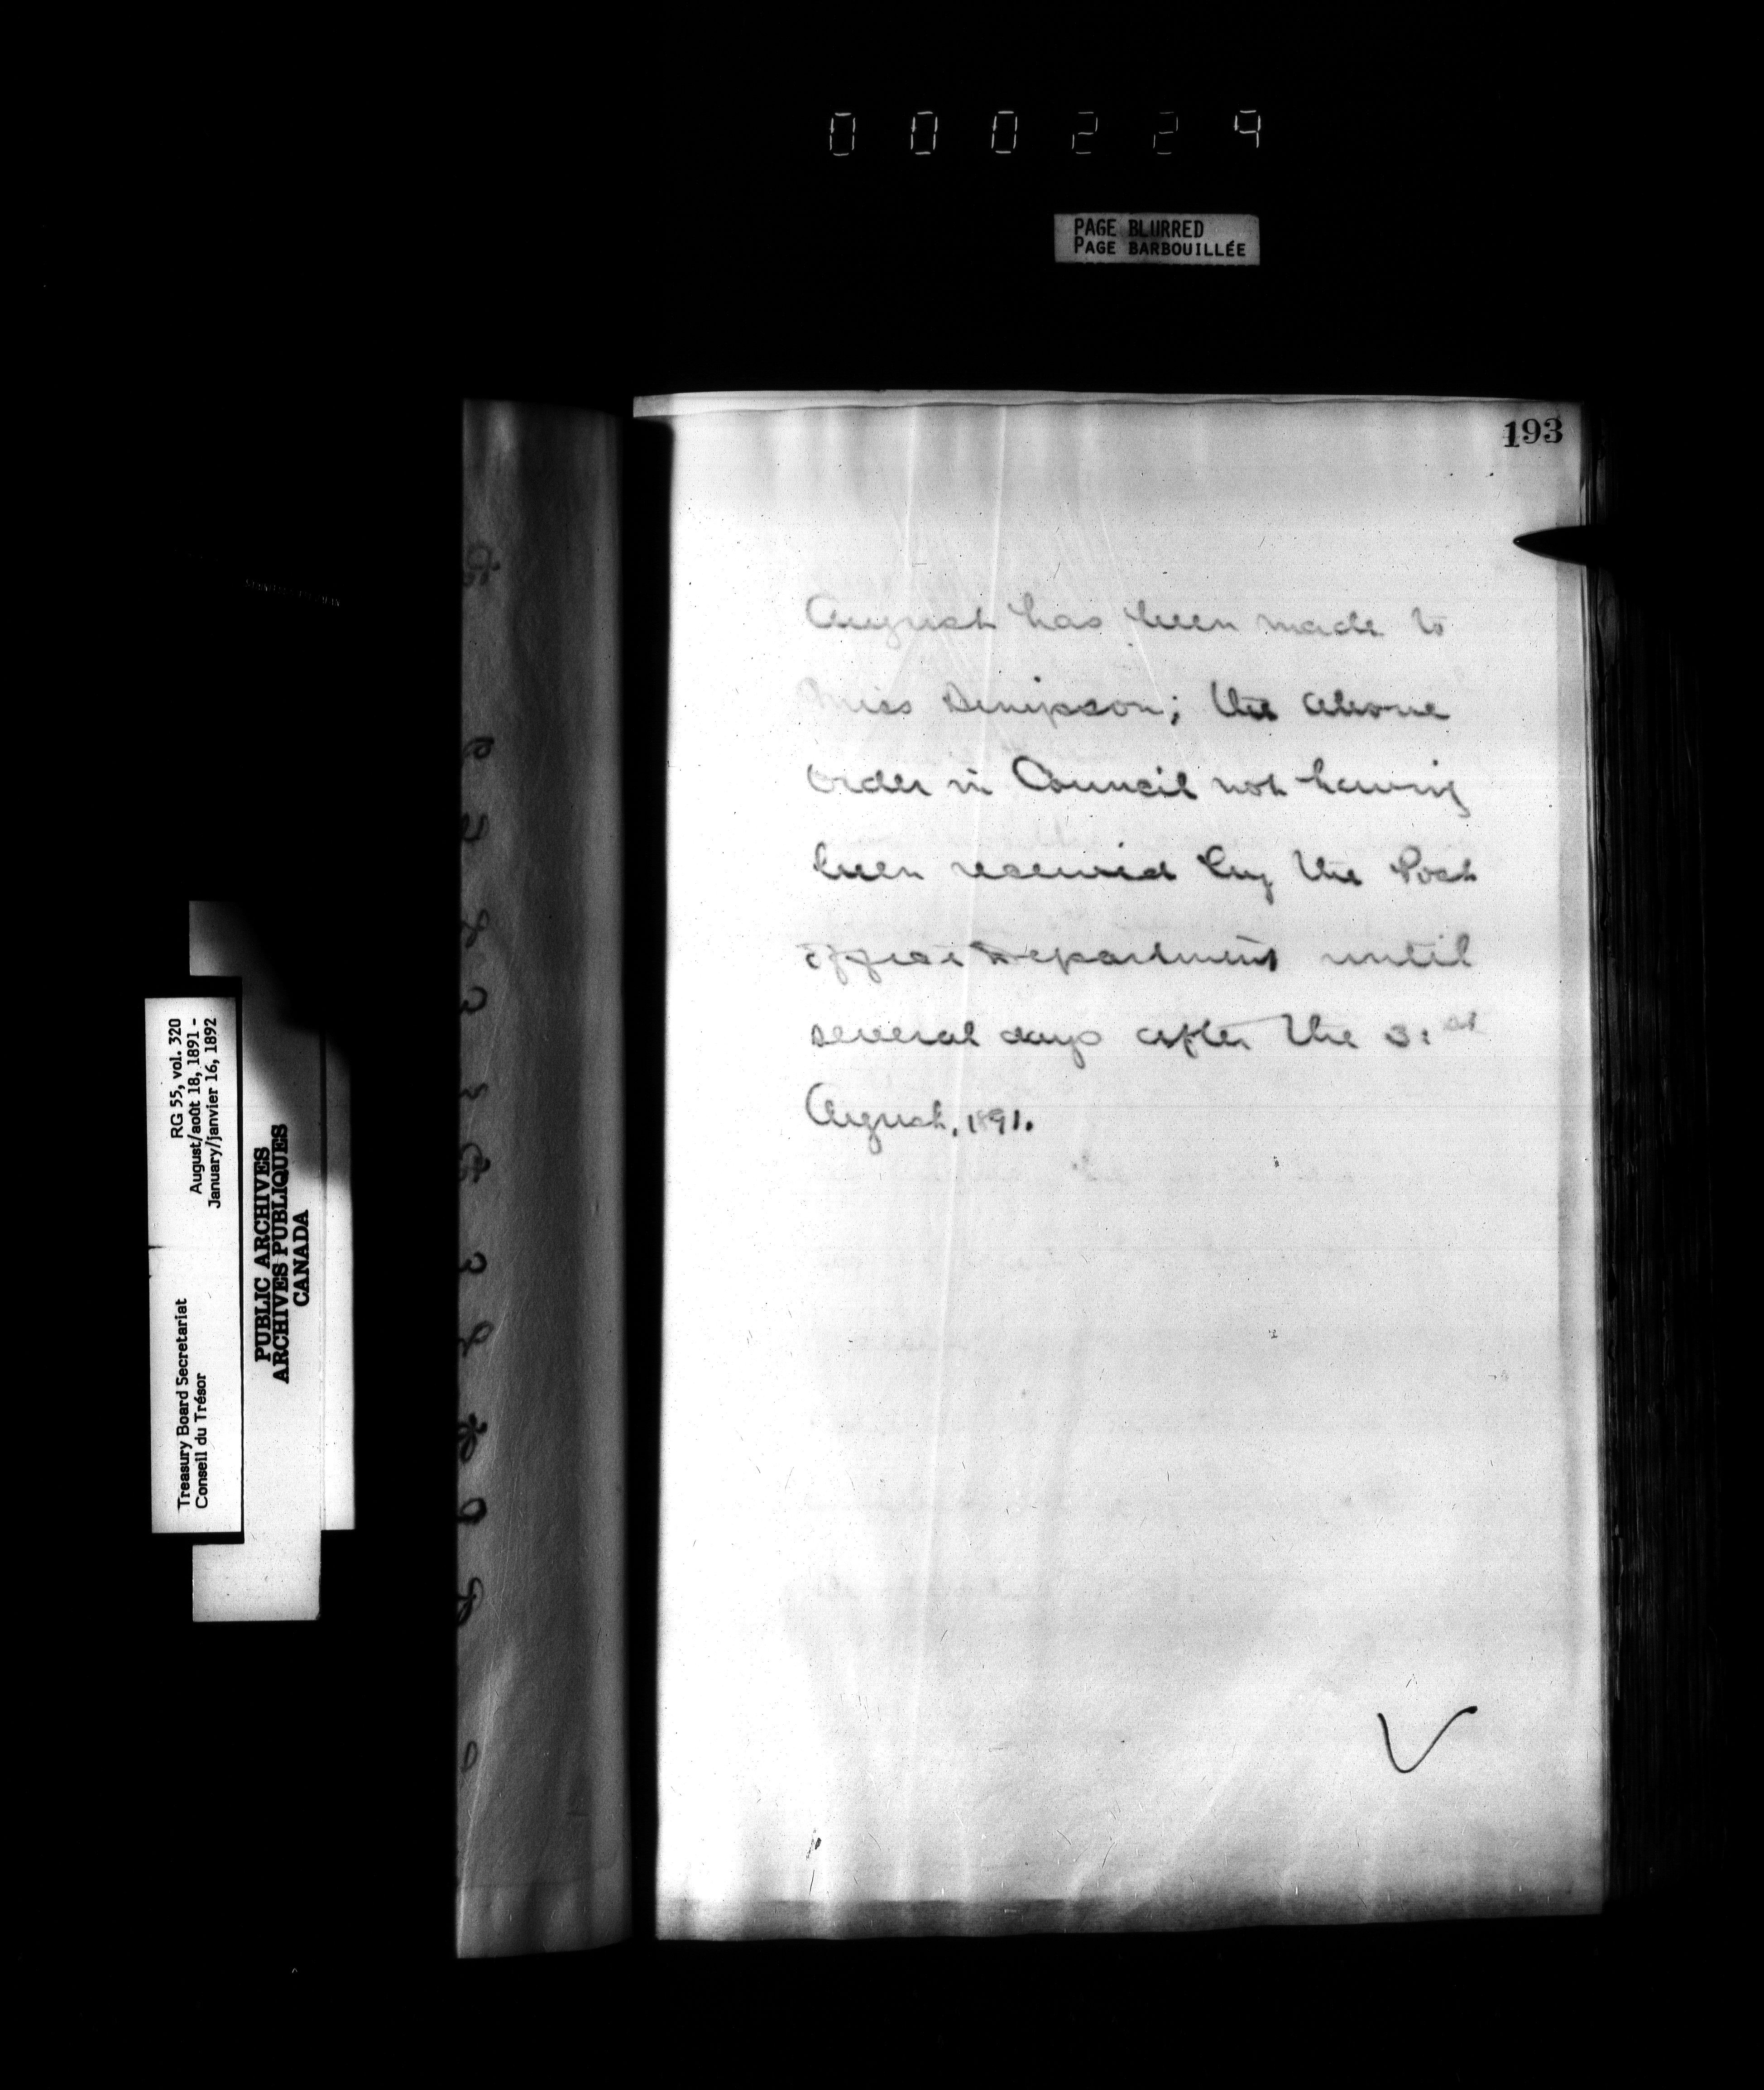 000229
PAGE BLURRED
PAGE BARBOUILLÉE
193
August has been made to
Miss Simpson; the above
Order in Council not having
been received by the Post
Office Department until
several days after the 31st
August, 1891.
RG 55, vol. 320
August/août 18, 1891 -
January/janvier 16, 1892
Treasury Board Secretariat
Conseil du Trésor
PUBLIC ARCHIVES
ARCHIVES PUBLIQUES
CANADA